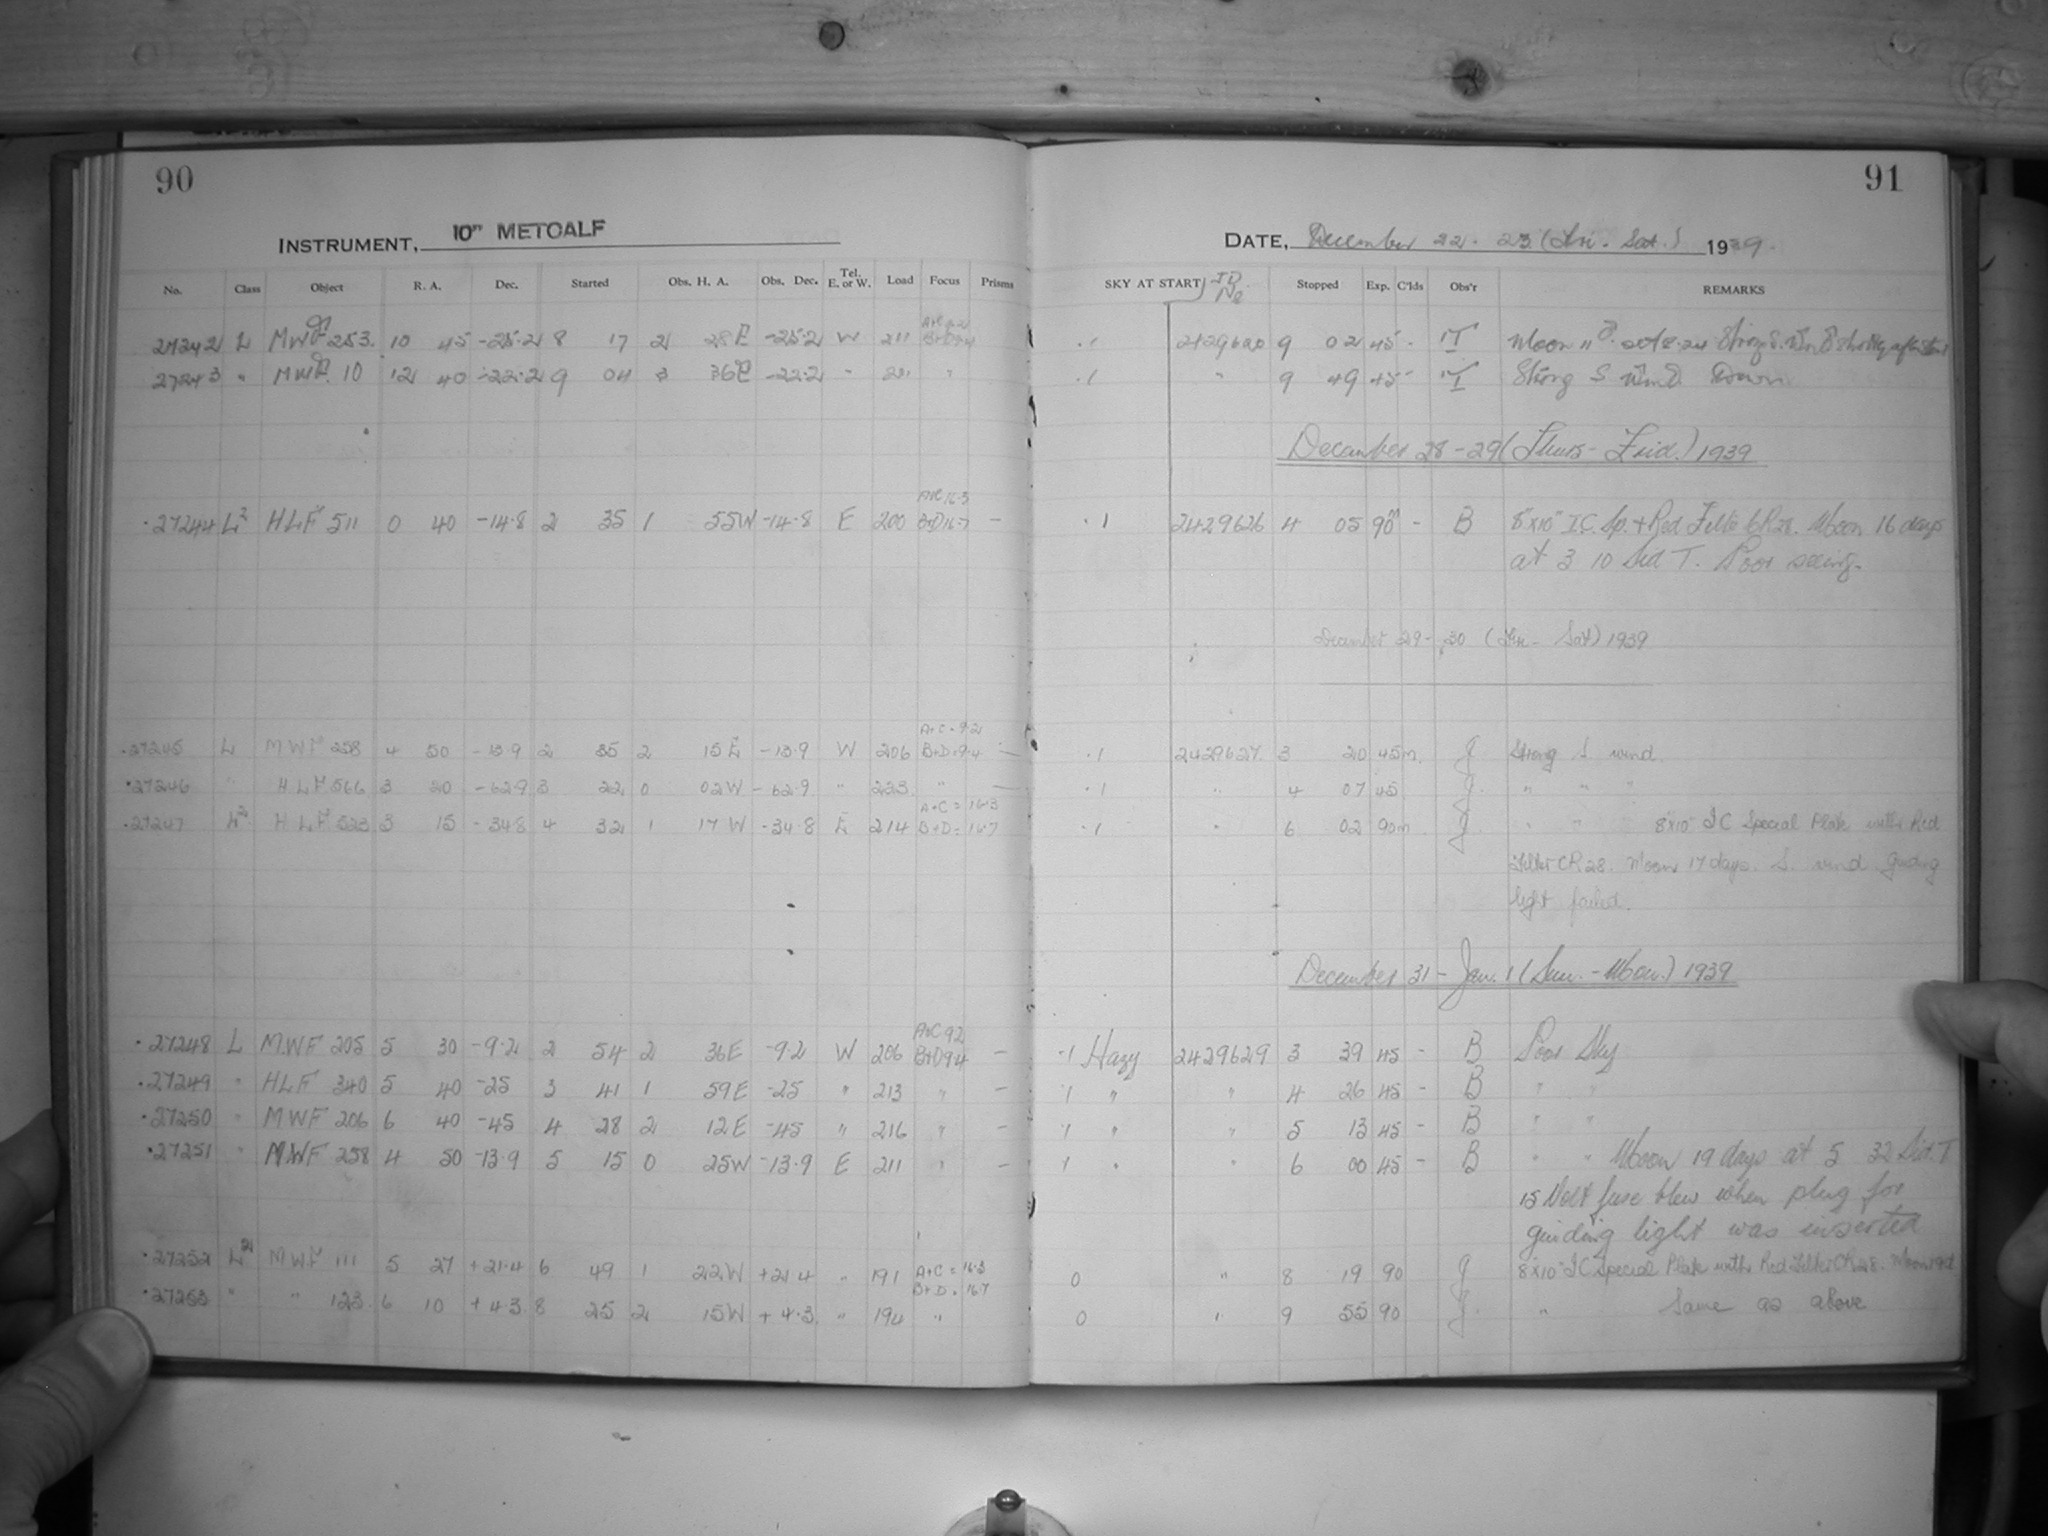 90
INSTRUMENT, 10" METCALF
No. Class Object R. A. Dec. Started Obs. H. A. Obs. Dec. Tel. E. or W. Load Focus Prisms
27242 L MWF 253. 10 45 -25.2 8 17 2 28E -25.2 W 211
27243 " MWF 10 12 40 -22.2 9 04 3 36E -22.2 " "
A+C 16.3
27244 L² HLF 511 0 40 -14.8 2 35 1 55W -14.8 E 200 B+D 16.7 —
A+C = 9.2
27245 L MWF 258 4 50 -13.9 2 35 2 15E -13.9 W 206 B+D = 9.4 —
27246 " HLF 566 3 20 -62.9 3 22 0 02W -62.9 " 233 " —
A+C = 16.3
27247 L² HLF 523 3 15 -34.8 4 32 1 17W -34.8 E 214 B+D = 16.7
A+C 92
27248 L MWF 205 5 30 -9.2 2 54 2 36E -9.2 W 206 B+D 94 —
27249 " HLF 340 5 40 -25 3 41 1 59E -25 " 213 " —
27250 " MWF 206 6 40 -45 4 28 2 12E -45 " 216 " —
27251 " MWF 258 4 50 -13.9 5 15 0 25W -13.9 E 211 " —
27252 L² MWF 111 5 27 +21.4 6 49 1 22W +21.4 " 191 A+C = 16.3
B+D = 16.7
27253 " " 123. 6 10 +4.3 8 25 2 15W +4.3. " 194 "
91
DATE, December 22. 23 (Fri. Sat.) 1939.
SKY AT START JD No. Stopped Exp. C'lds Obs'r REMARKS
.1 2429620 9 02 45 - T Moon 11 d. set 8.24 Strong S. Wind
.1 " 9 49 45 T Strong S Wind Dawn
December 28-29 (Thurs-Frid.) 1939
.1 2429626 4 05 90m - B 8"x10" I.C. Sp. + Red Filter CR28. Moon 16 days
at 3 10 Sid T. Poor seeing.
December 29-30 (Fri- Sat) 1939
.1 2429627. 3 20 45m. J Strong S wind.
.1 " 4 07 45 J. " " "
.1 " 6 02 90m J " " 8"x10" IC Special Plate with Red
Filter CR28. Moon 17 days. S. wind Guiding
light failed.
December 31 - Jan. 1 (Sun. - Mon.) 1939
.1 Hazy 2429629 3 39 45 - B Poor Sky
.1 " " 4 26 45 - B " "
.1 " " 5 13 45 - B " "
.1 " " 6 00 45 - B " " Moon 19 days at 5 32 Sid. T
15 Volt fuse blew when plug for
guiding light was inserted
0 " 8 19 90 J 8"x10" IC Special Plate with Red Filter CR28. Moon 19d
0 " 9 55 90 J. " Same as above